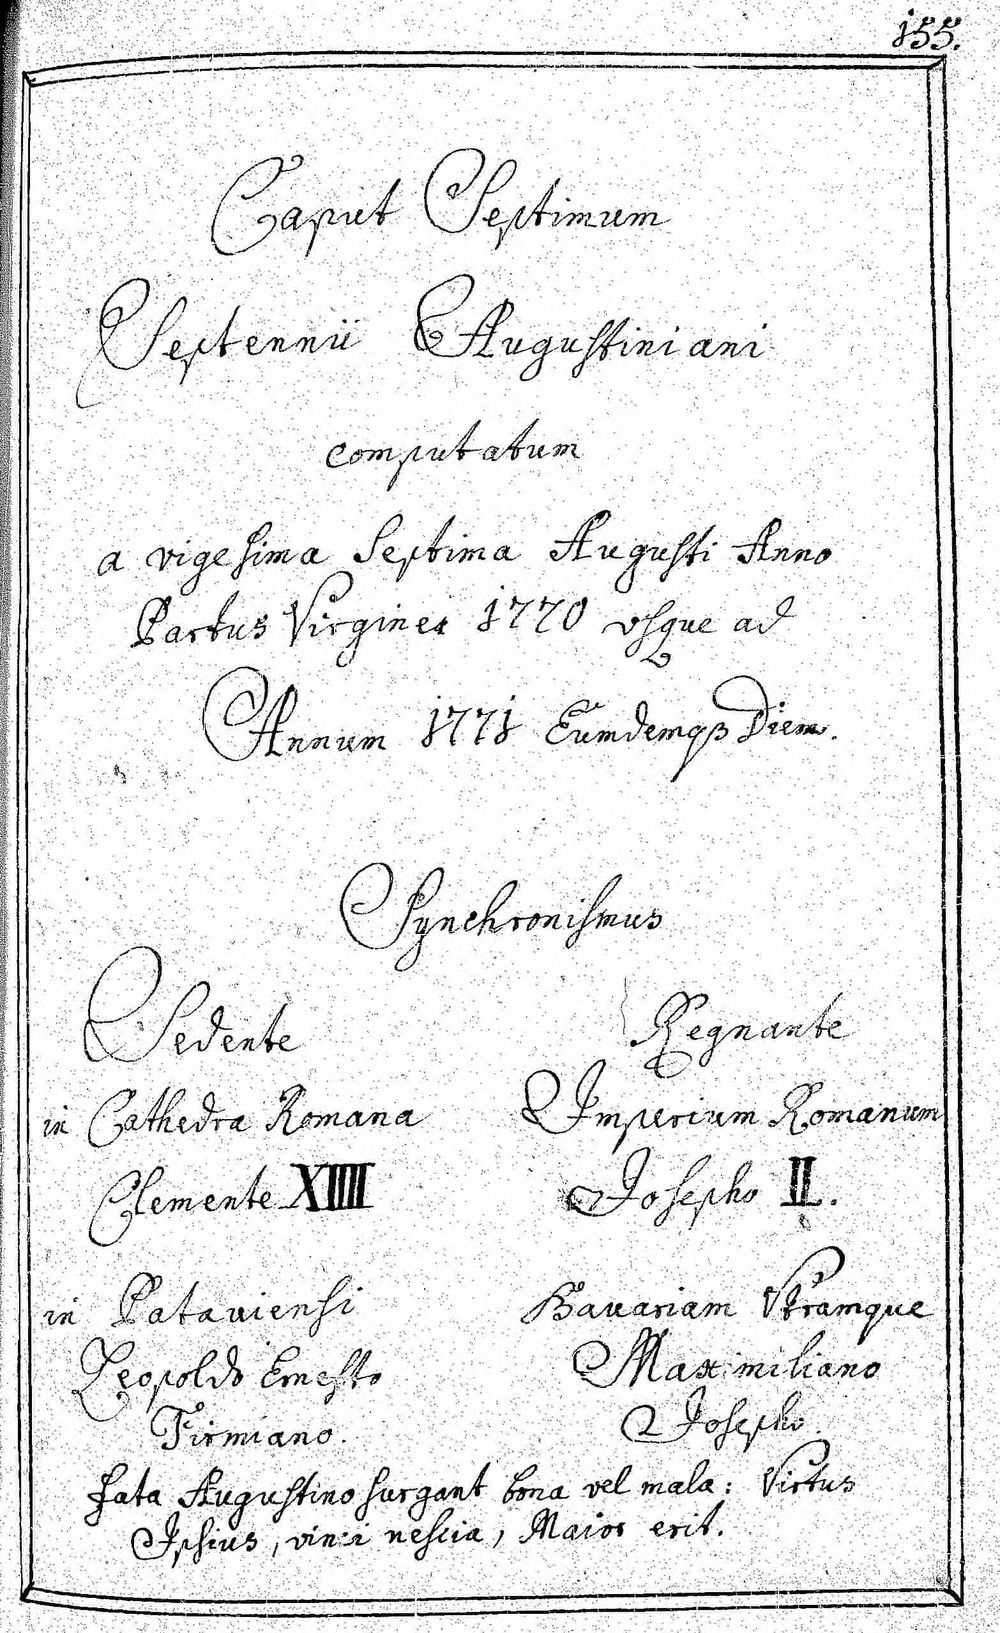 155.
Caput Septimum
Septennii Augustiniani
computatum
a vigesima Septima Augusti Anno
Partus Virginea 1770 vsque ad
Annum 1771 Eumdemqꝫ Diem.
Synchronismus
Sedente
in Cathedra Romana
Clemente XIIII
in Patauiensi
Leopoldo Ernesto
Firmiano.
Regnante
Imperium Romanum
Josepho II.
Bauariam Vtramque
Maximiliano
Josepho.
fata Augustino surgant bona vel mala: Virtus
Ipsius, vinci nescia, Maior erit.